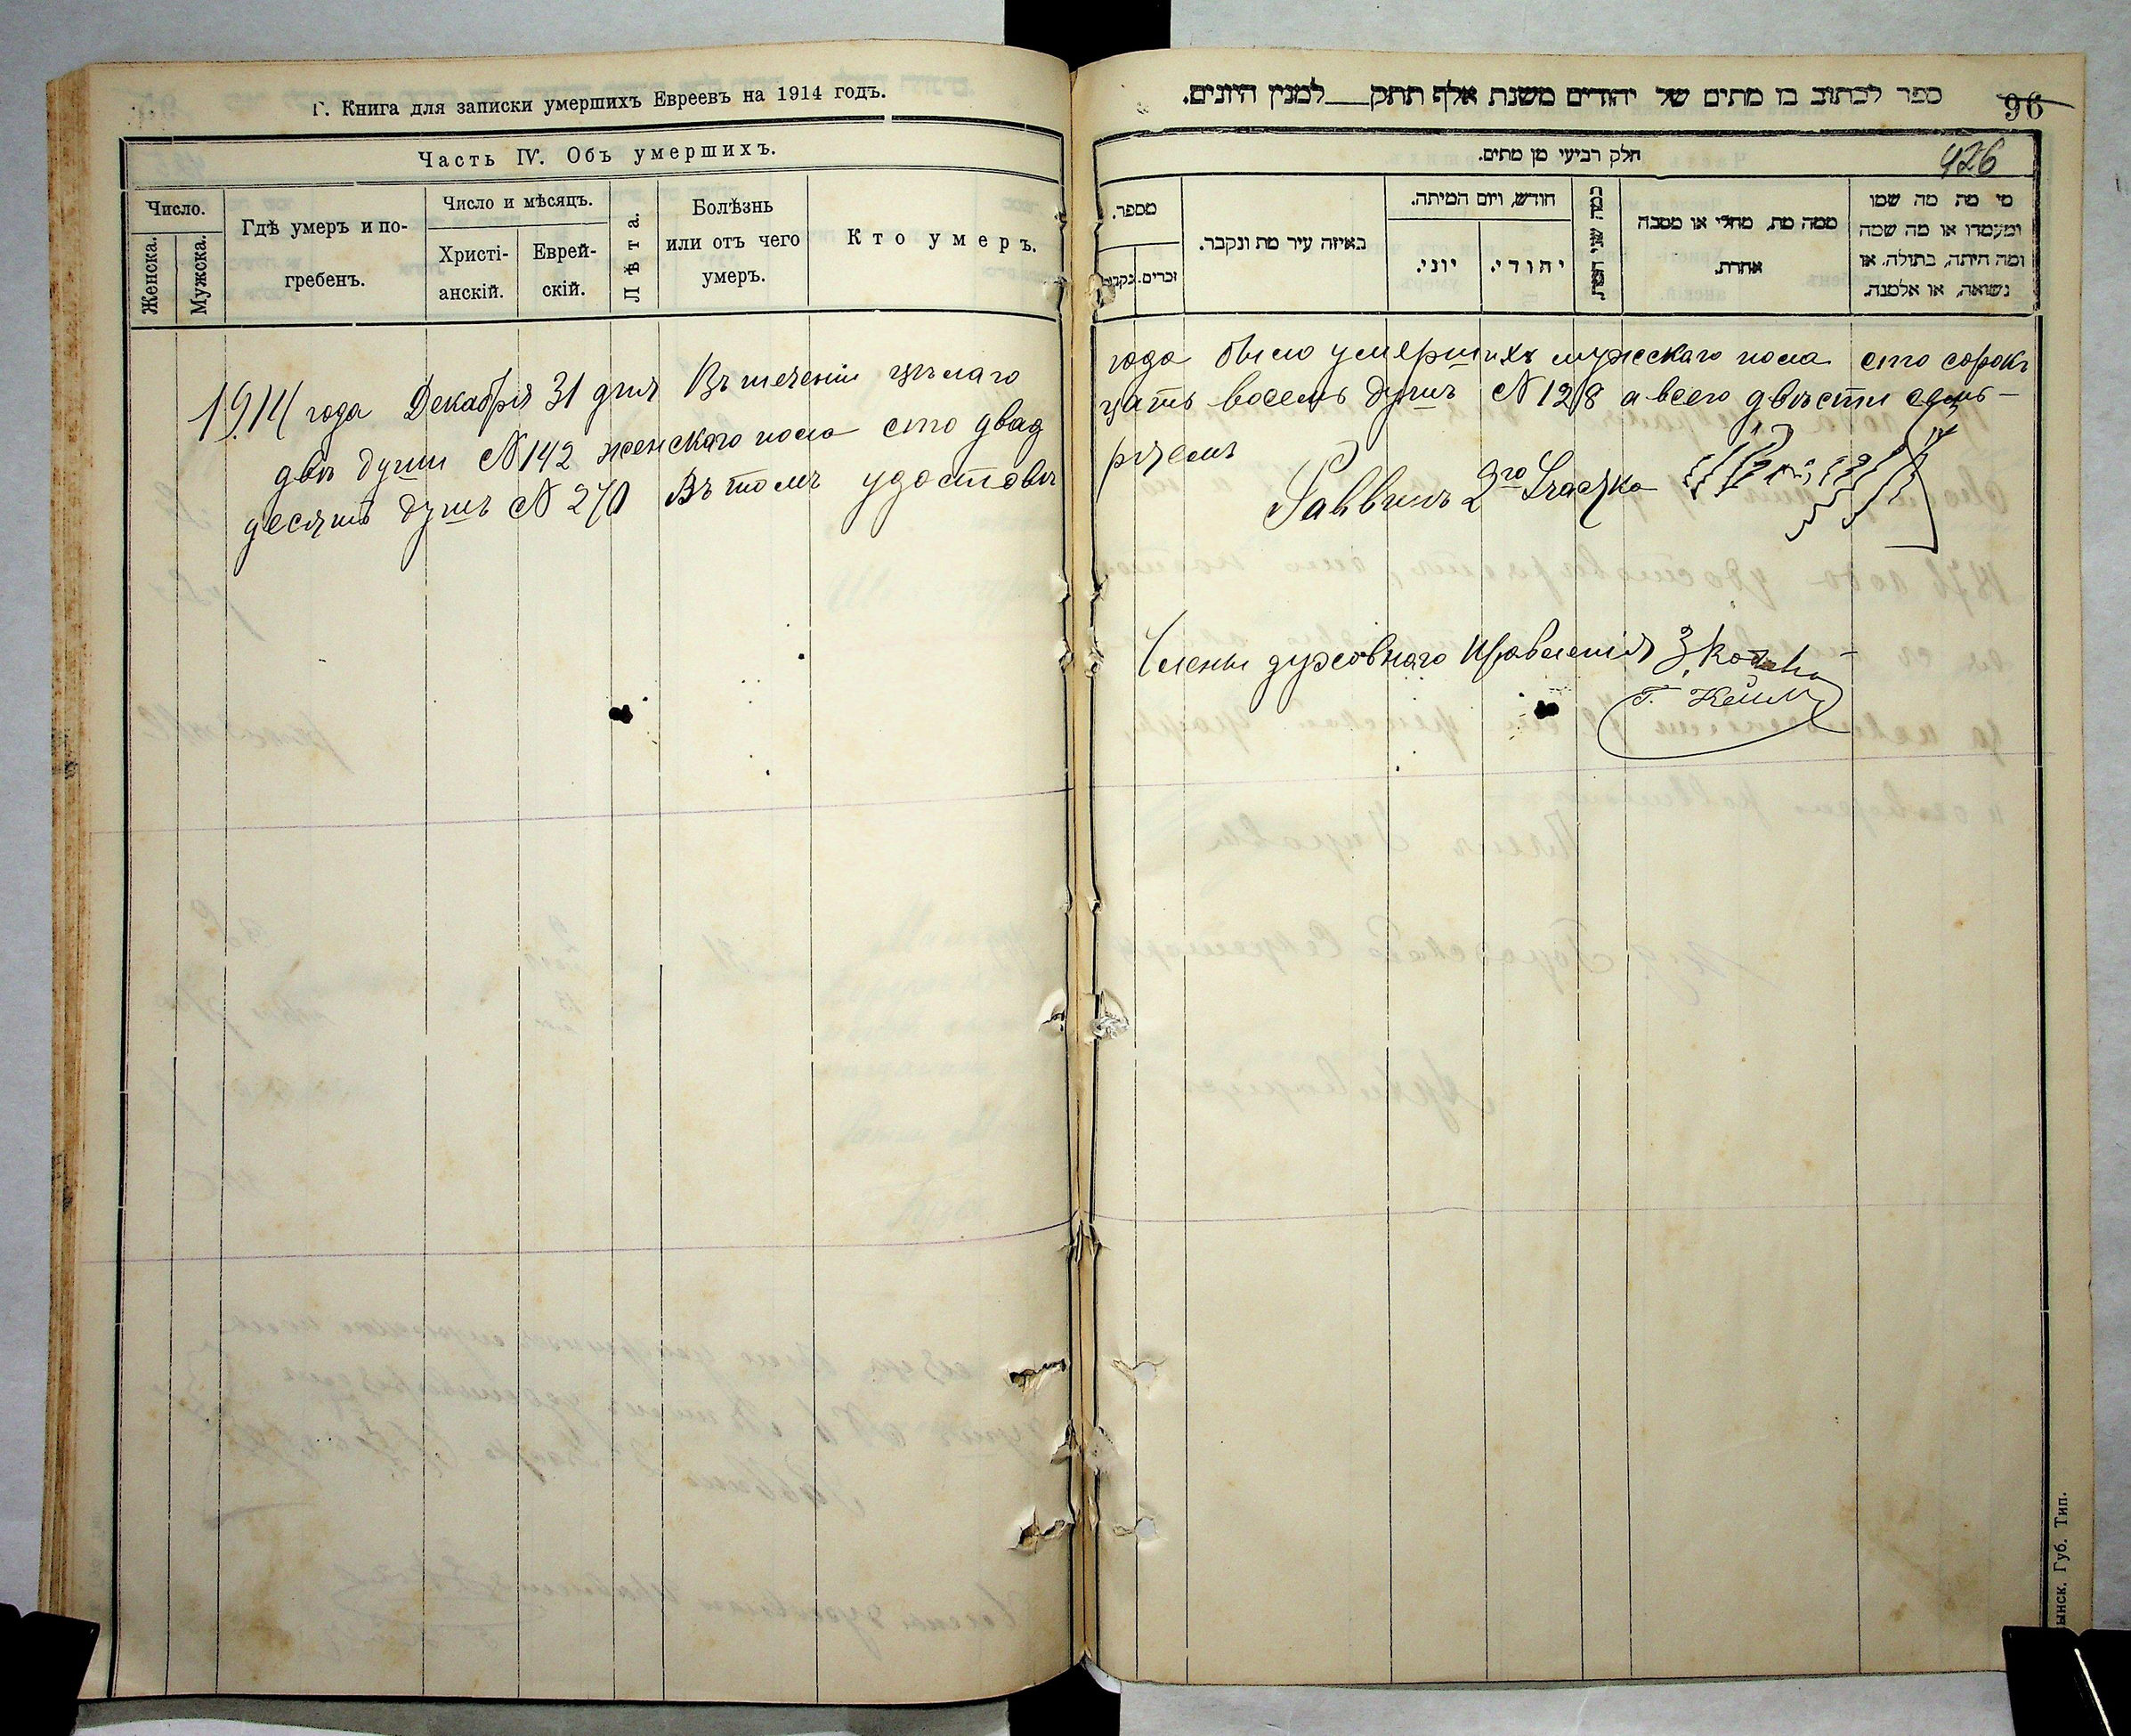 Г. Книга для записки умершихъ Евреевъ на 1914 годъ.
Часть IV. Объ умершихъ.
Число.
Женска.
Мужска.
Гдѣ умеръ и по-
гребенъ.
Число и мѣсяцъ.
Христі-
анскій.
Еврей-
скій.
Лѣта.
Болѣзнь
или отъ чего
умеръ.
Кто умеръ.
1914 года Декабря 31 дня Въ теченіи цѣлаго
двѣ души № 142 женскаго пола сто двад
десятъ душъ № 270 Въ томъ удостовѣ
ספר לכתוב בו מתים של יהודים משנת אלף תתק למנין היונים.
96
חלק רביעי מן מתים.
426
מספר.
זכרים.
נקבות
באיזה עיר מת ונקבר.
חודש, ויום המיתה.
יוני.
יהודי.
כמה שני המת.
ממה מת, מחלי או מסבה
אחרת.
מי מת מה שמו
ומעמדו או מה שמה
ומה היתה, בתולה. או
נשואה, או אלמנה.
года было умершихъ мужскаго пола сто сорокъ
цать восемь душъ № 128 а всего двѣсти семь-
ряемъ
Раввинъ
Члены духовнаго Правленія
ынск. Губ. Тип.